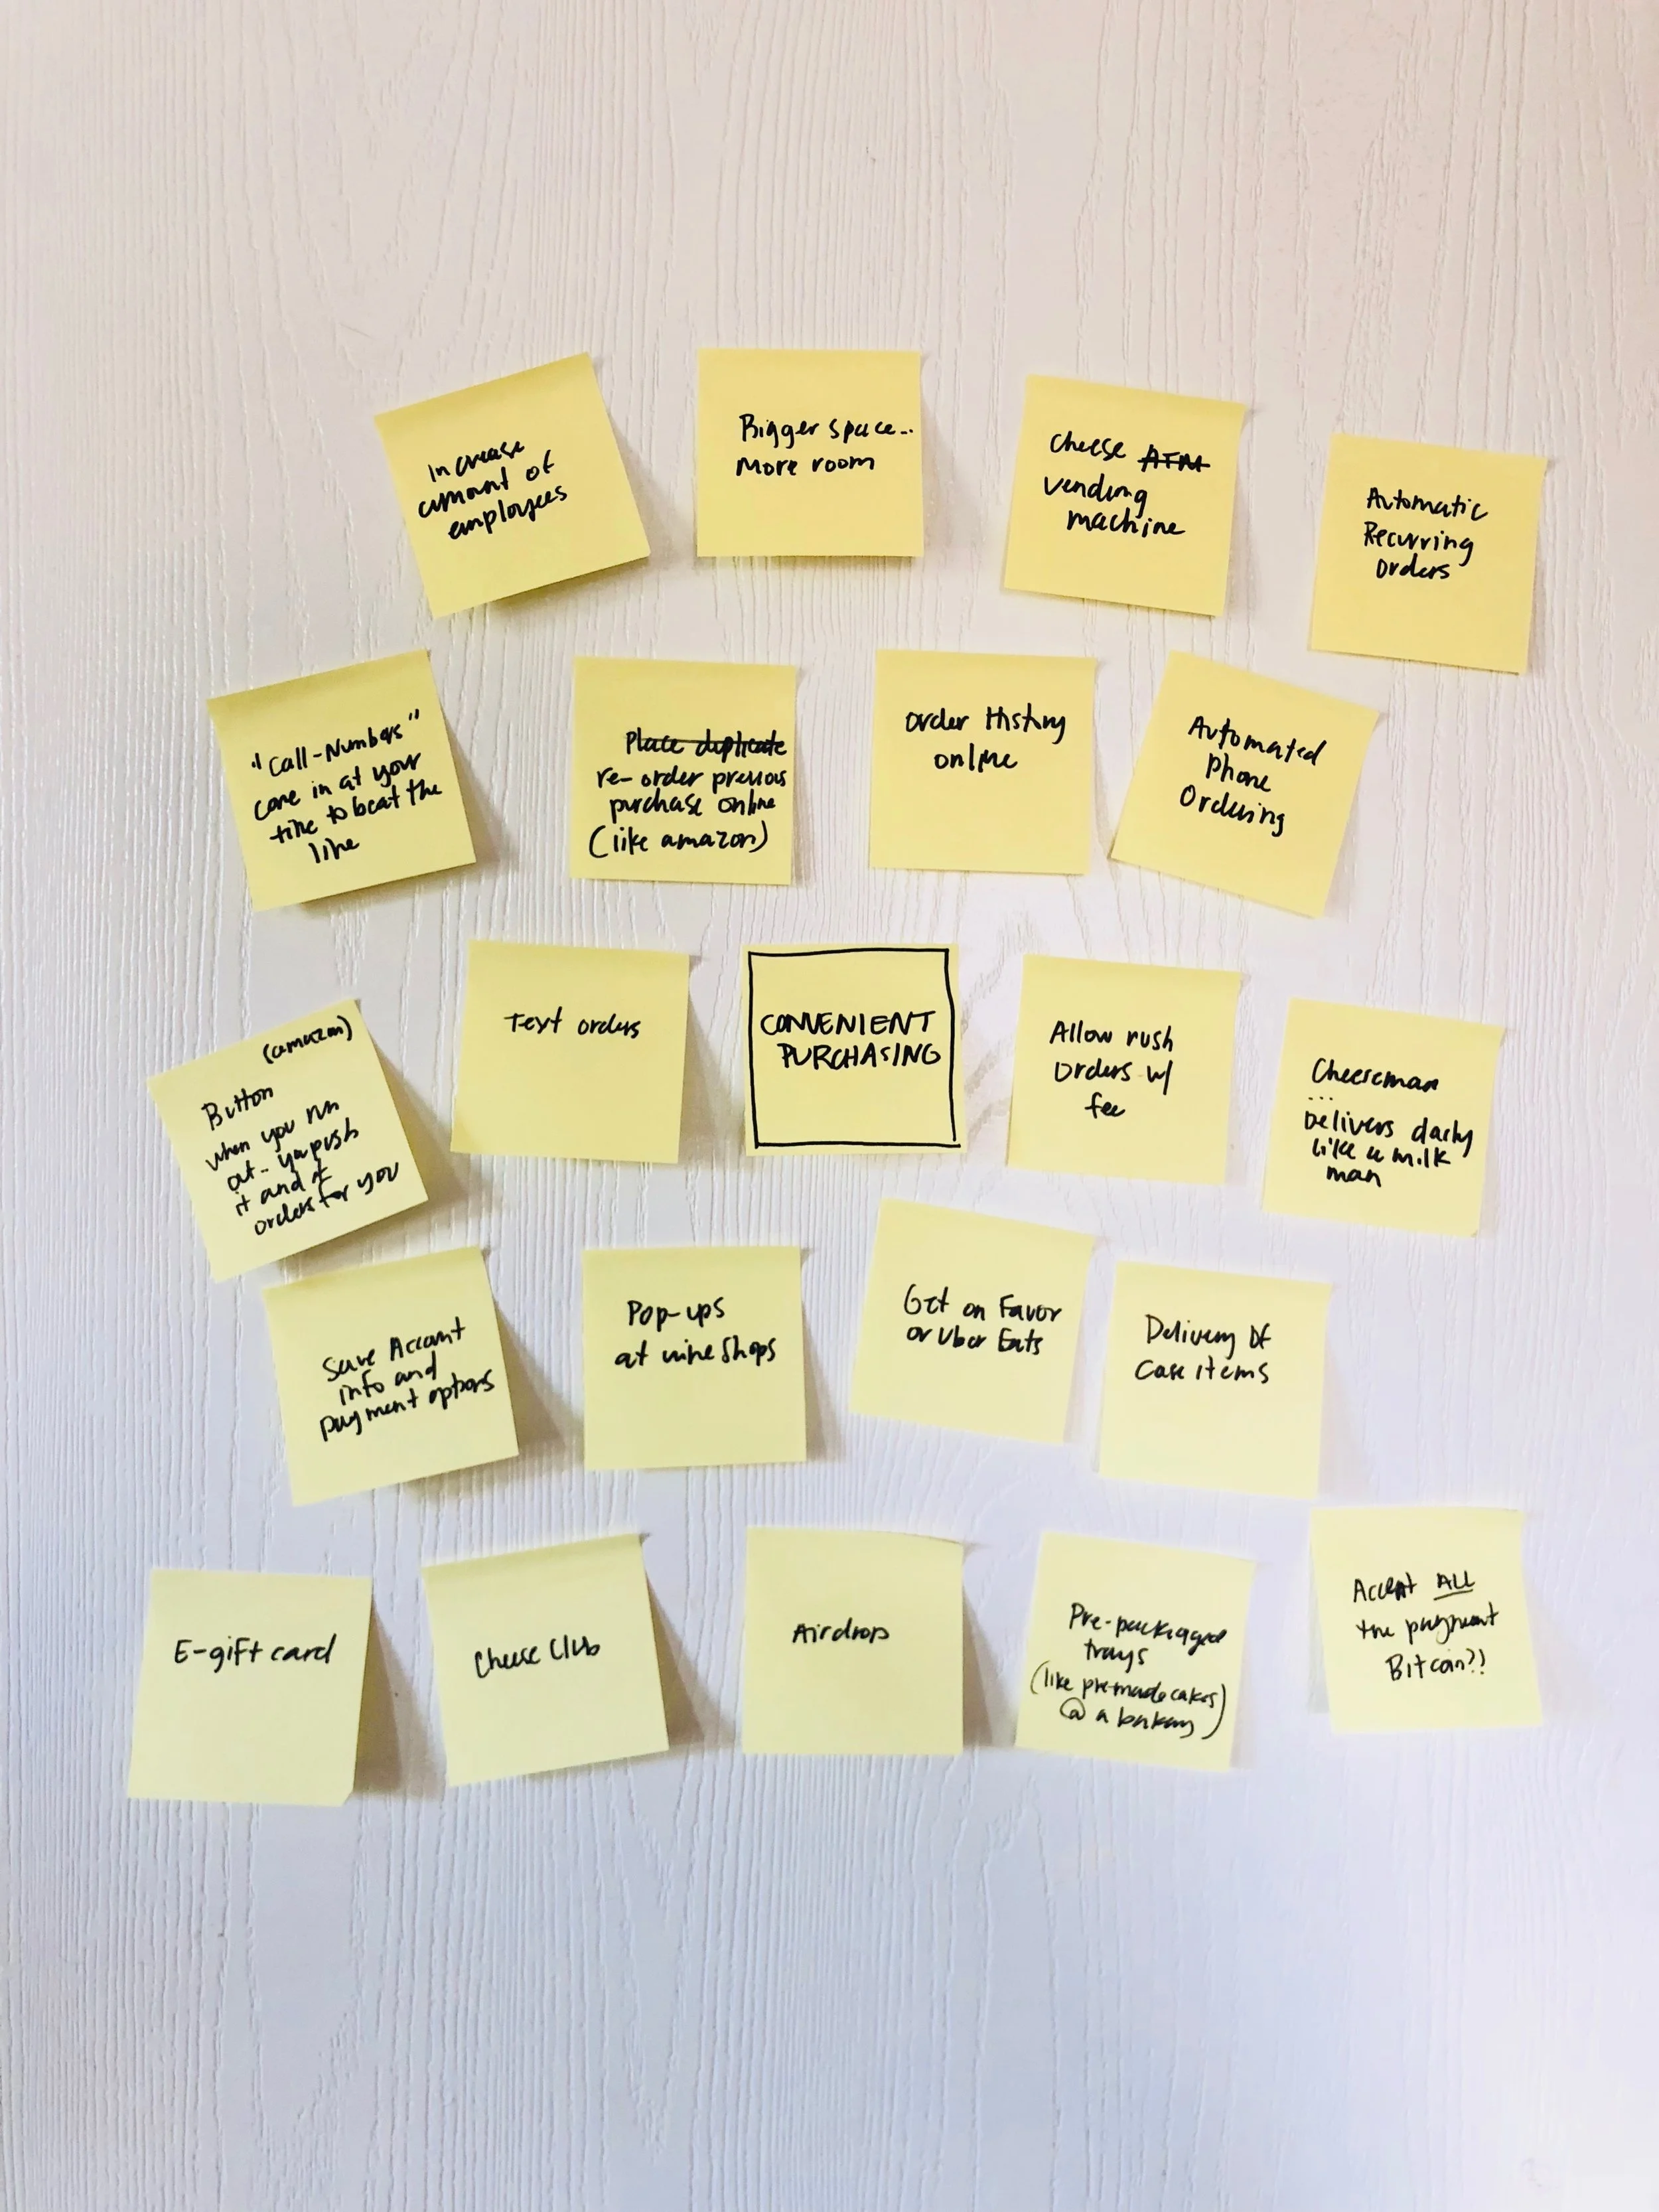 Increase
amount of
employees
Bigger space..
More room
Cheese ATM
vending
machine
Automatic
Recurring
Orders
"Call-Numbers"
come in at your
time to beat the
line
Place duplicate
re-order previous
purchase online
(like amazon)
Order History
online
Automated
Phone
Ordering
(amazon)
Button
when you run
out- you push
it and it
orders for you
Text orders
CONVENIENT
PURCHASING
Allow rush
Orders w/
fee
Cheeseman
...
Delivers daily
like a milk
man
Save Account
info and
payment options
Pop-ups
at wine shops
Get on Favor
or Uber Eats
Delivery of
Case items
E-gift card
Cheese Club
Airdrop
Pre-packaged
trays
(like premade cakes)
@ a bakery)
Accept ALL
the payment
Bitcoin?!